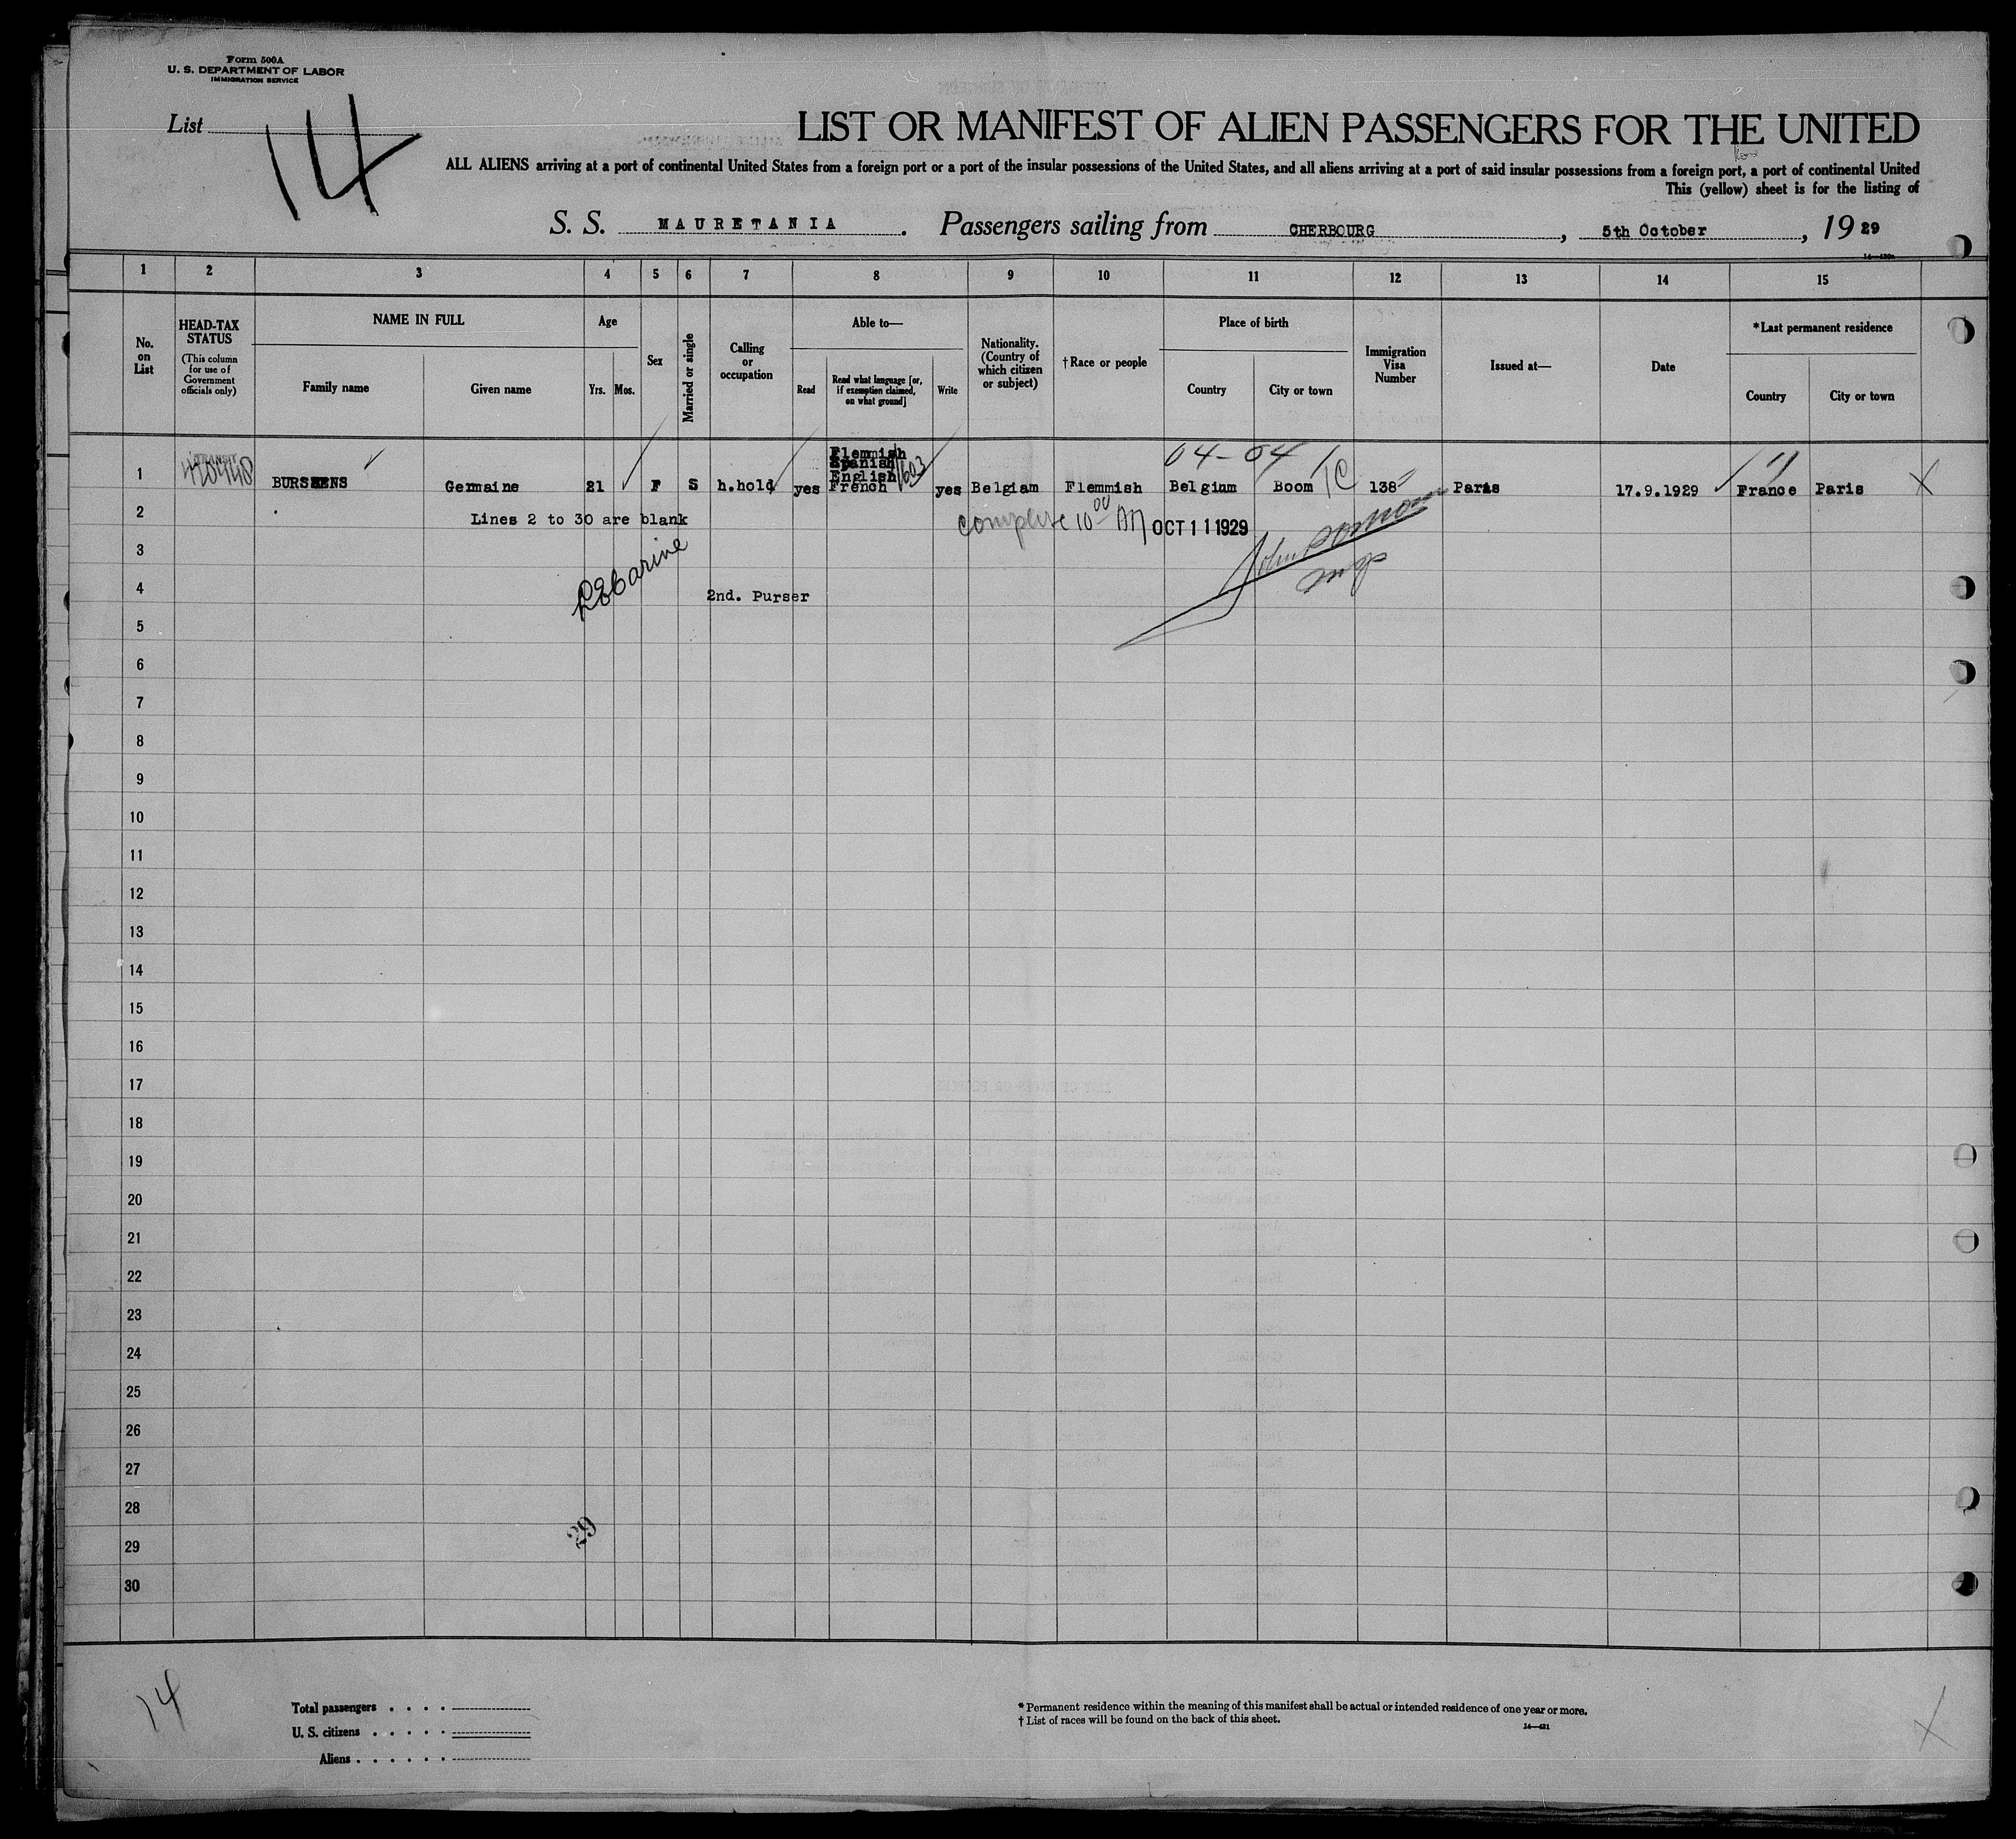 Form 500A
U. S. DEPARTMENT OF LABOR
IMMIGRATION SERVICE
List 14
LIST OR MANIFEST OF ALIEN PASSENGERS FOR THE UNITED
ALL ALIENS arriving at a port of continental United States from a foreign port or a port of the insular possessions of the United States, and all aliens arriving at a port of said insular possessions from a foreign port, a port of continental United
This (yellow) sheet is for the listing of
S. S. MAURETANIA. Passengers sailing from CHERBOURG, 5th October, 1929
1 2 3 4 5 6 7 8 9 10 11 12 13 14 15
No. on List
HEAD-TAX STATUS
(This column for use of Government officials only)
NAME IN FULL
Family name
Given name
Age
Yrs. Mos.
Sex
Married or single
Calling or occupation
Able to—
Read
Read what language [or, if exemption claimed, on what ground]
Write
Nationality. (Country of which citizen or subject)
†Race or people
Place of birth
Country
City or town
Immigration Visa Number
Issued at—
Date
*Last permanent residence
Country
City or town
Flemmish
Spanish
English
04-04
1 TRANSIT BURSSENS Germaine 21 F S h.hold yes French yes Belgiam Flemmish Belginm Boom 138 Paris 17.9.1929 France Paris X
2 Lines 2 to 30 are blank complete 10 00 AM OCT 11 1929
3
4 2nd. Purser
5
6
7
8
9
10
11
12
13
14
15
16
17
18
19
20
21
22
23
24
25
26
27
28
29
29
30
14
Total passengers
U. S. citizens
Aliens
*Permanent residence within the meaning of this manifest shall be actual or intended residence of one year or more.
†List of races will be found on the back of this sheet.
14—421
X